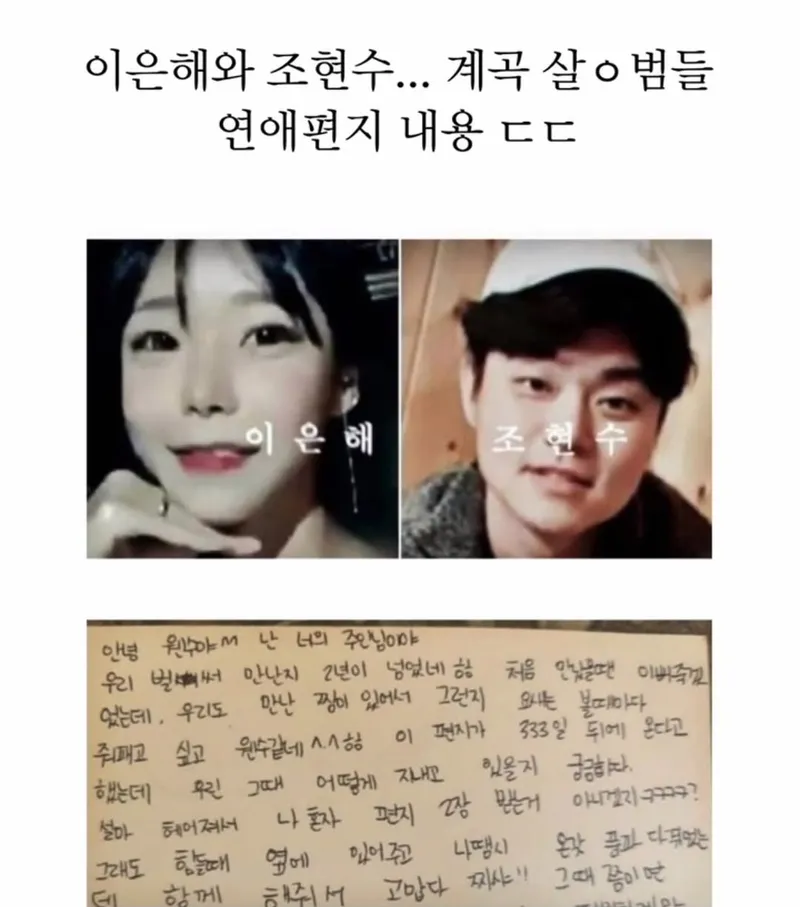 이은해와 조현수... 계곡 살ㅇ범들
연애편지 내용 ㄷㄷ
이 은 해
조 현 수
안녕 원수야~ 난 너의 주인님이야
우리 벌써 만난지 2년이 넘었네 헝 처음 만났을땐 이뻐죽겠
었는데, 우리도 만난 짬이 있어서 그런지 요새는 볼때마다
줘패고 싶고 원수같네^^헝 이 편지가 333일 뒤에 온다고
했는데 우린 그때 어떻게 지내고 있을지 궁금하다.
설마 헤어져서 나 혼자 편지 2장 받는거 아니겠지ㅋㅋㅋㅋ?
그래도 힘들때 옆에 있어주고 나땜시 온갖 풍파 다 겪었는
데 함께 해줘서 고맙다 찌샤!! 그때 쯤이면